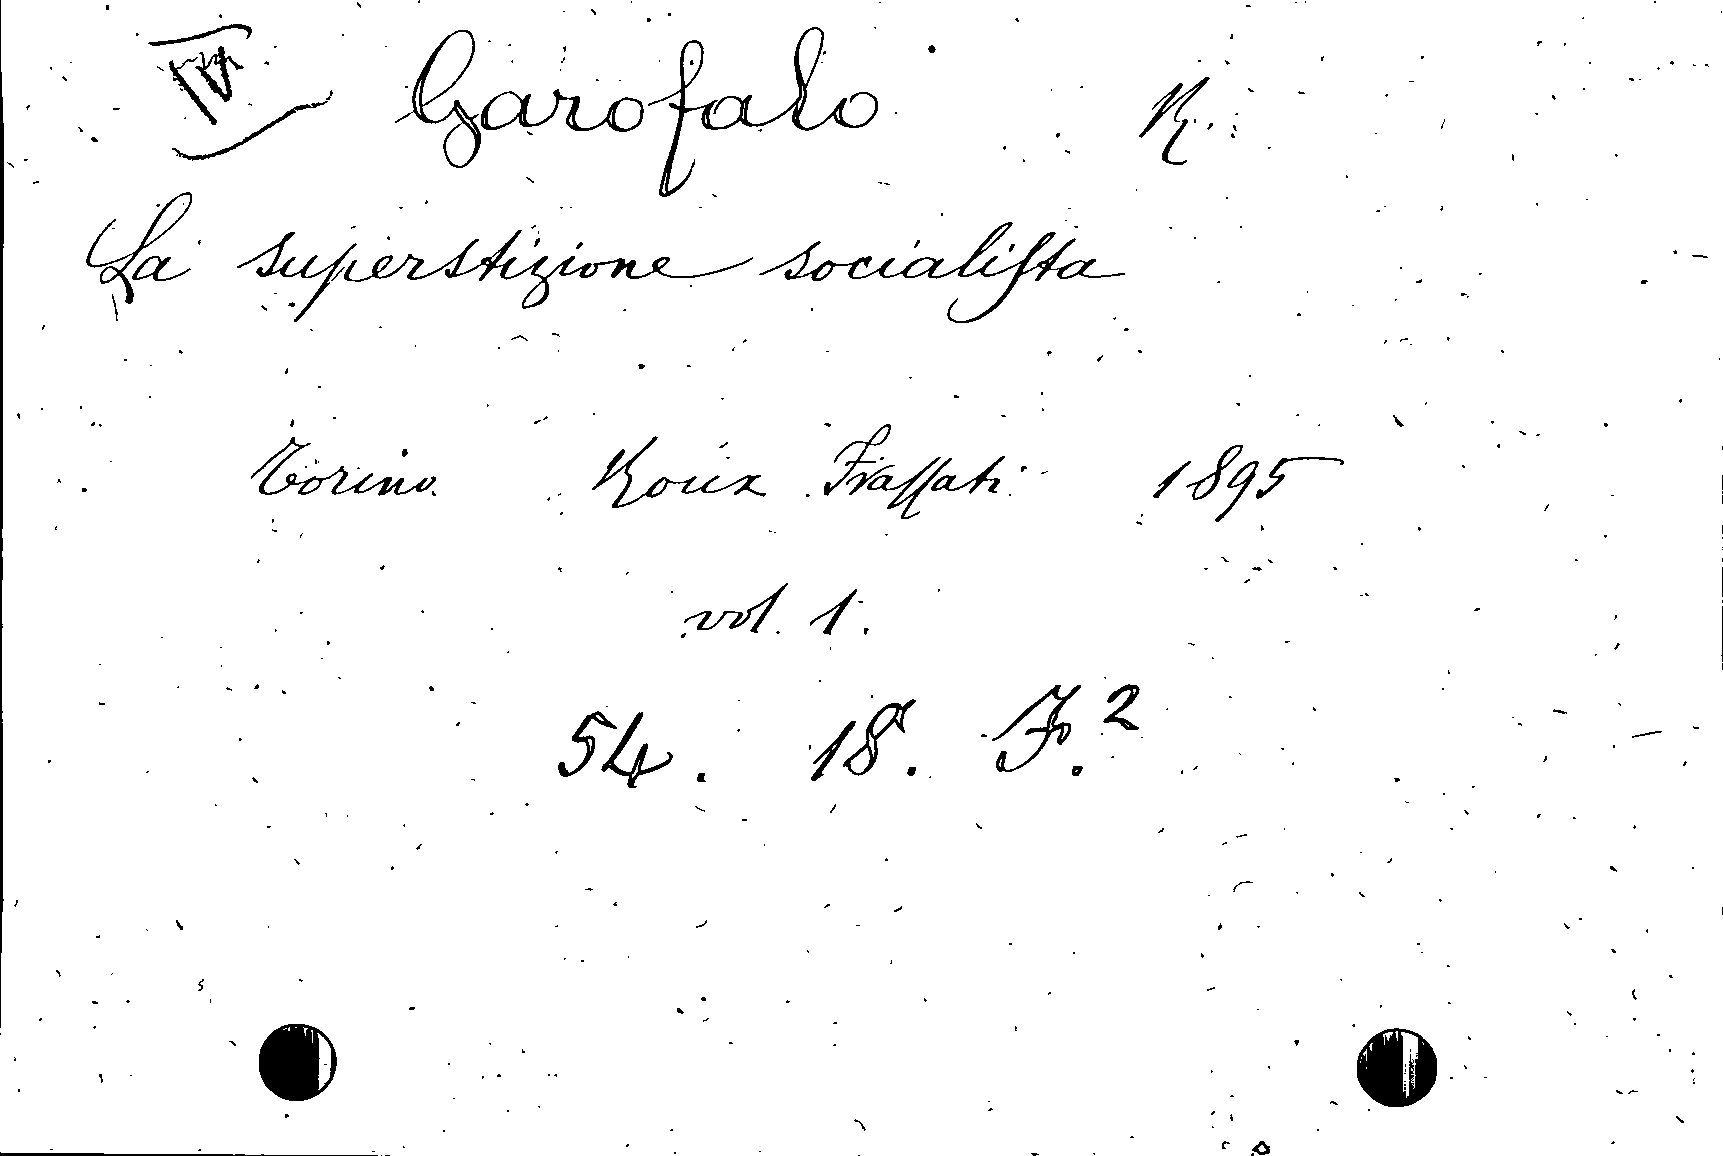 IV Garofalo R.
La superstizione socialista
Torino Roux Frassati 1895
vol. 1.
54. 18. F.²